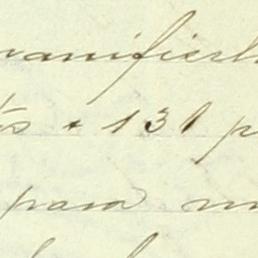 manifiest
ts + 131 p
para m